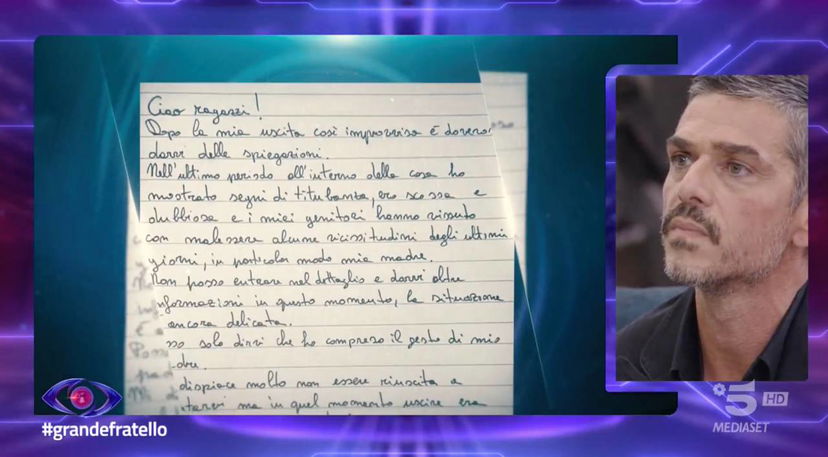 Ciao ragazzi!
Dopo la mia uscita così improvvisa è
darvi delle spiegazioni.
Nell'ultimo periodo all'interno della casa ho
mostrato segni di titubanza, ero scossa e
dubbiosa e i miei genitori hanno vissuto
con malessere alcune vicissitudini degli ultimi
giorni, in particolar modo mia madre.
Non posso entrare nel dettaglio e darvi altre
nformazioni in questo momento, la situazione
ancora delicata.
sso solo dirvi che ho compreso il gesto di mio
dre.
dispiace molto non essere riuscita a
ma in quel momento uscire era
#grandefratello
5 HD
MEDIASET